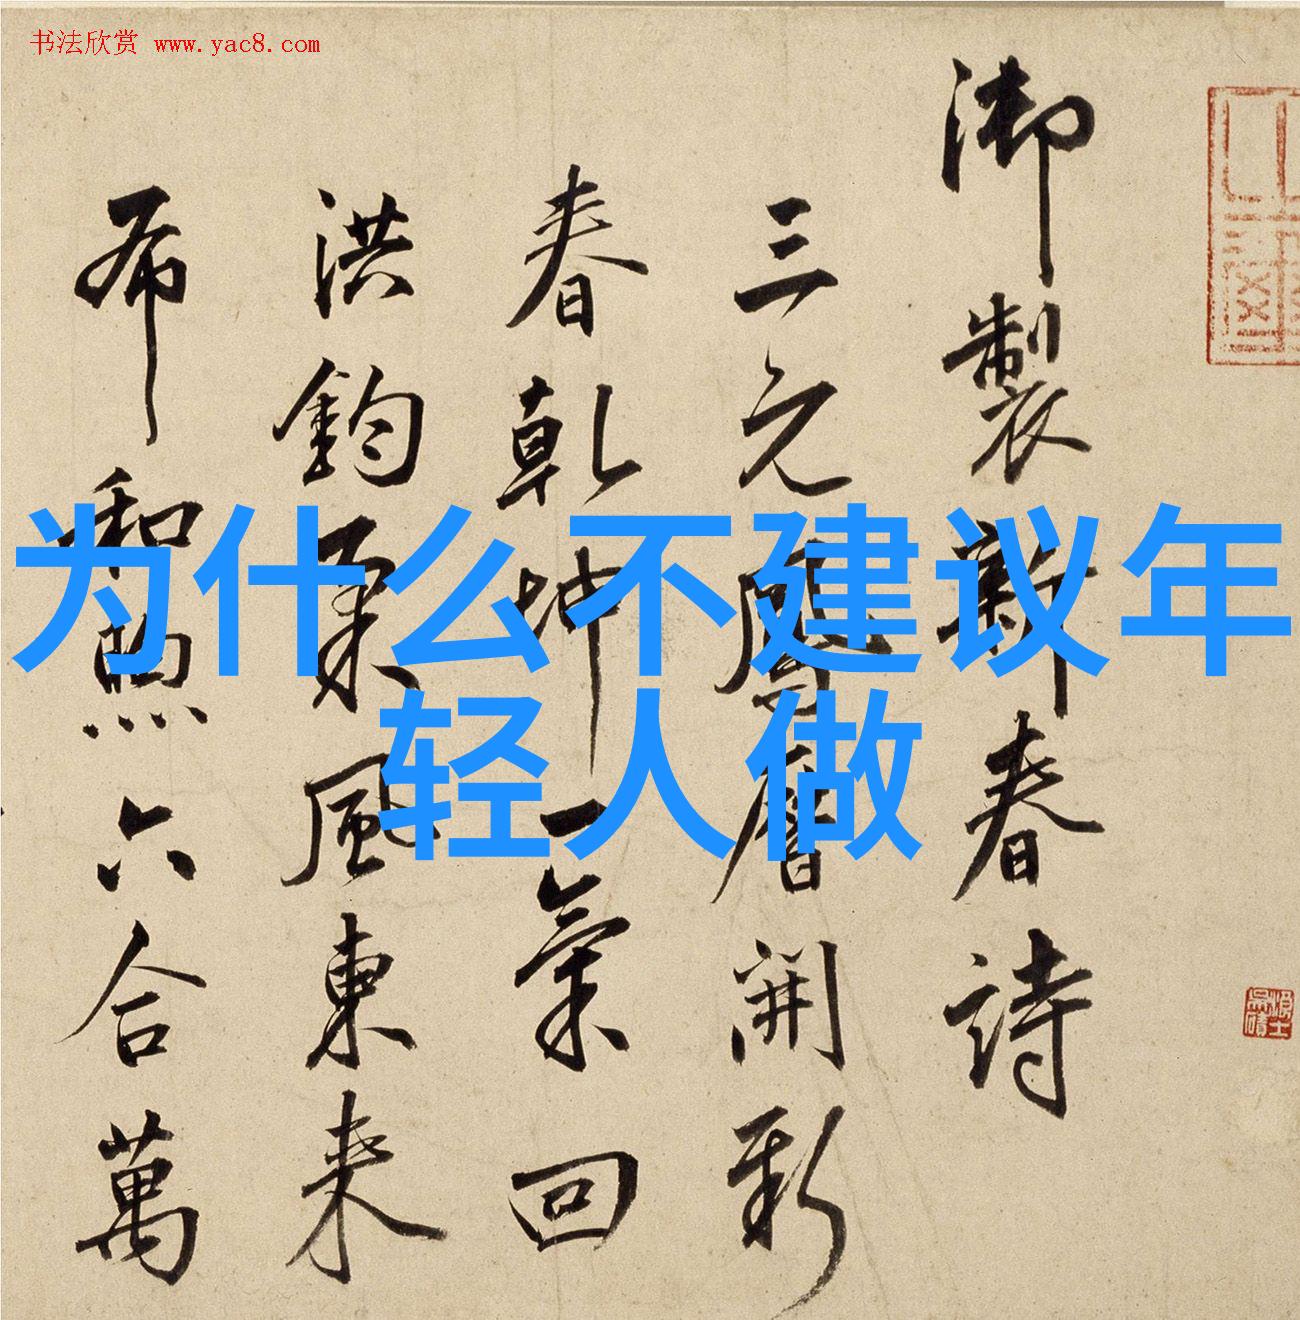 书法欣赏 www.yac8.com
御製新春詩
三元鳳曆開新
春乾坤一氣回
洪鈞柔風東来
布和煦六合萬
为什么不建议年
轻人做